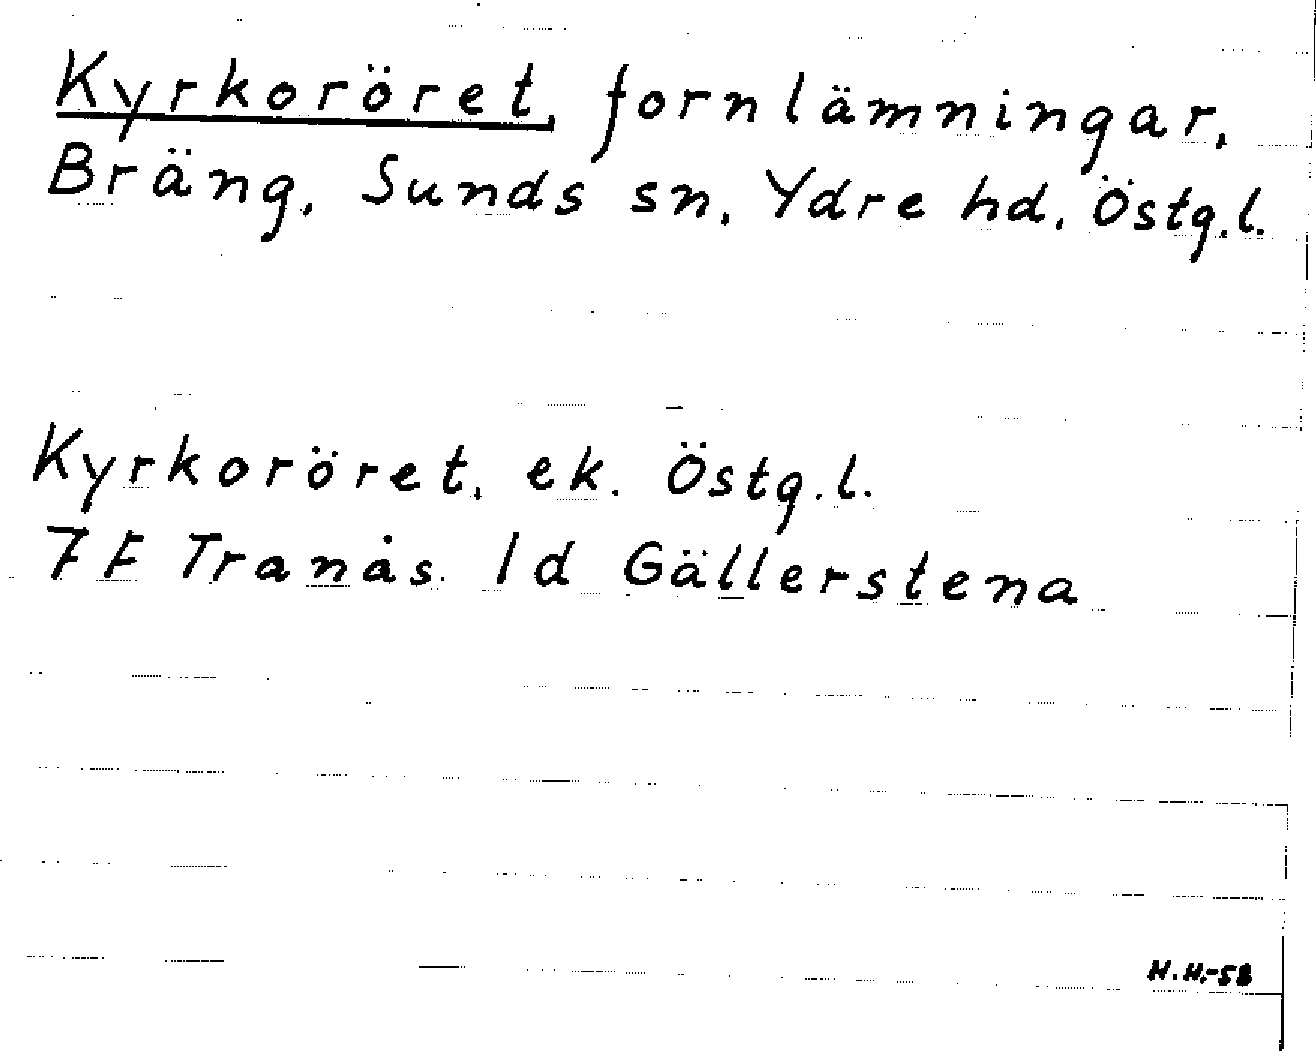 Kyrkoröret, fornlämningar,
Bräng, Sunds sn, Ydre hd, Östg.l.
Kyrkoröret, ek. Östg.l.
7 F Tranås. 1d Gällerstena
H.H.-58